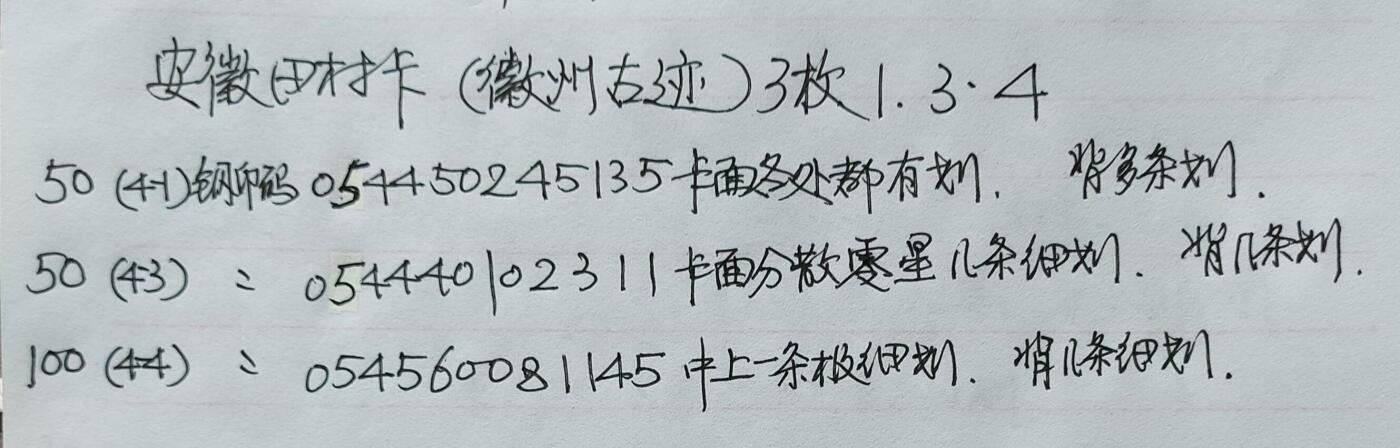 安徽田村卡（徽州古迹）3枚1.3.4
50（4-1）钢印码054450245135卡面各处都有划．背多条划．
50（4-3）〃054440102311卡面分散零星几条细划．背几条划．
100（4-4）〃054560081145中上一条极细划．背几条细划．